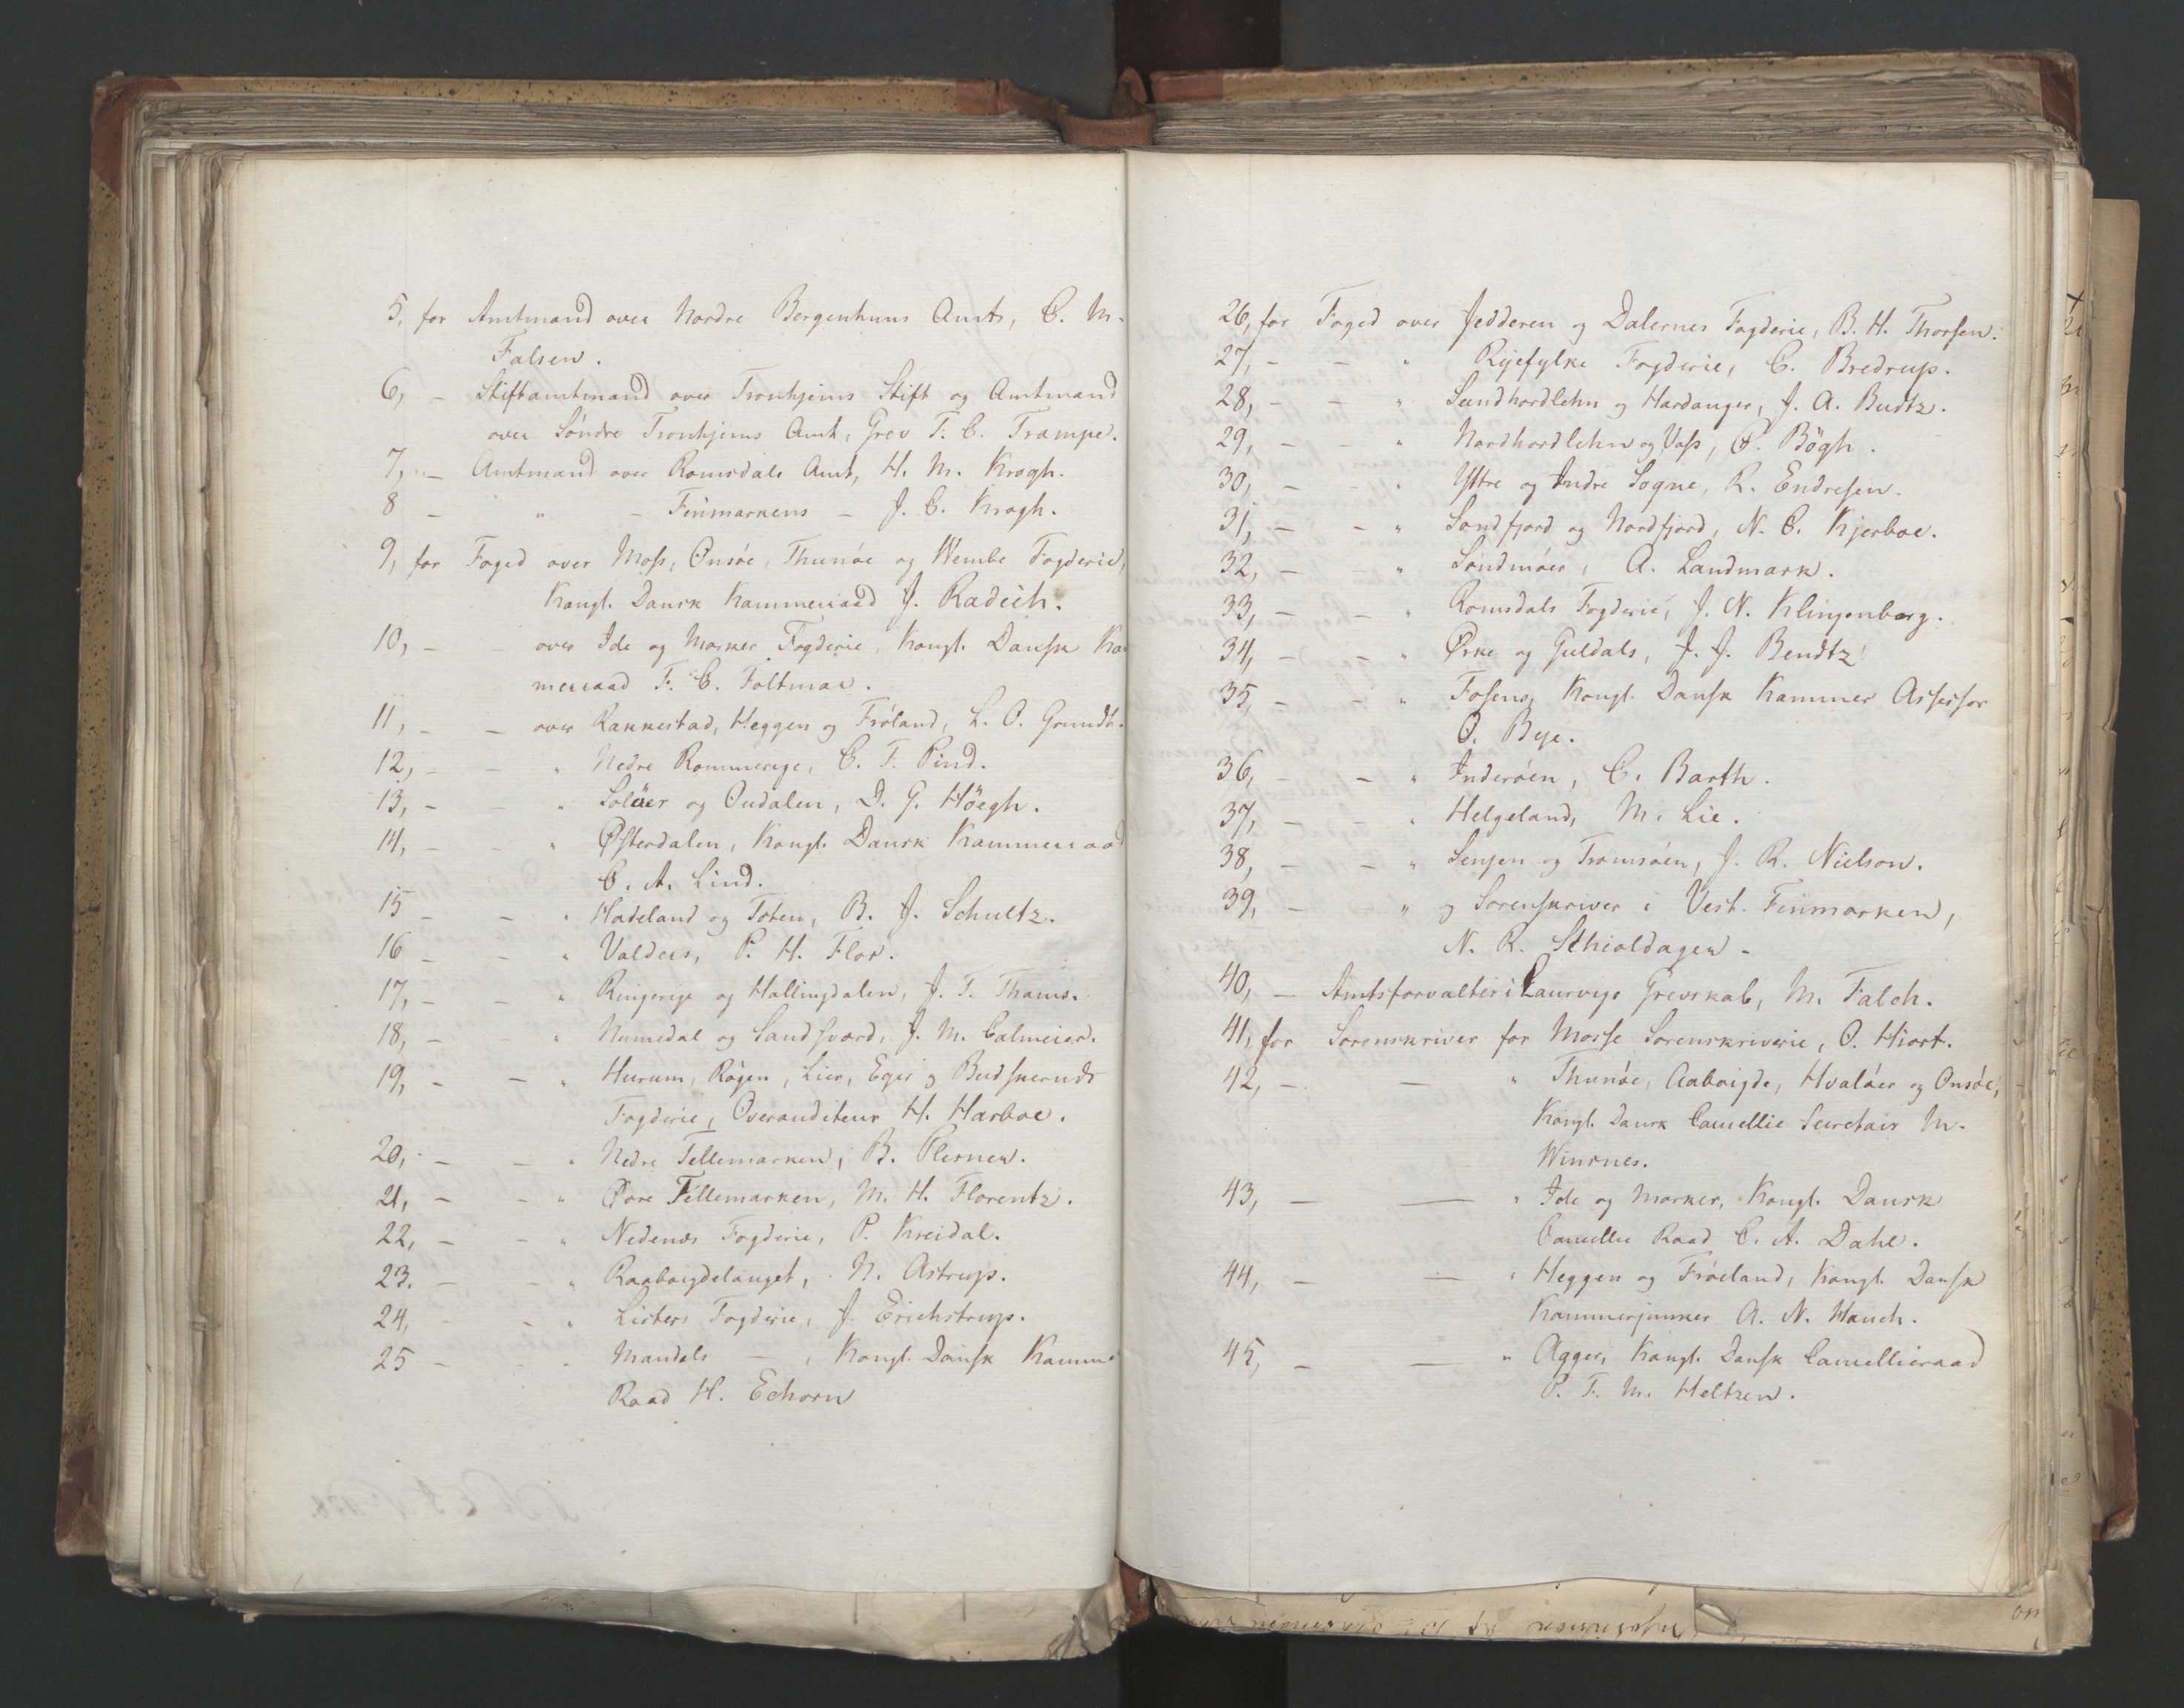 5, for Amtmand over Nordre Bergenhuus Amt, C. M.
Falsen.
6, — Stiftamtmand over Tronhjems Stift og Amtmand
over Söndre Tronhjems Amt, Grev F. C. Trampe.
7, — Amtmand over Romsdals Amt, H. M. Krogh.
8 — " — Finmarkens — J. C. Krogh.
9, for Foged over Moss, Onsöe, Thunöe og Wembe Fogderie,
Kongl. Dansk Kammerraad J. Radich.
10, — over Ide og Marker Fogderie, Kongl. Dansk Ka
merraad F. C. Foltmar.
11, — — over Rakkestad, Heggen og Fröland, L. O. Grundt.
12, — — " Nedre Rommerige, C. F. Pind.
13, — — " Solöer og Oudalen, D. G. Höegh.
14, — — " Østerdalen, Kongl. Dansk Kammerraad
C. A. Lind.
15 — — " Hadeland og Toten, B. J. Schultz.
16 — — " Valders, P. H. Flor.
17, — — " Ringerige og Hallingdalen, J. F. Thams.
18, — — " Numedal og Sandsværd, J. M. Calmeier.
19, — — " Hurum, Rögen, Lier, Eger og Budskeruds
Fogderie, Overauditeur H. Harboe.
20, — — " Nedre Tellemarken, B. Plesner.
21, — — " Øvre Tellemarken, M. H. Florentz.
22, — — " Nedenæs Fogderie, P. Kreidal.
23. — — " Raabøigdelauget, N. Astrup.
24, — — " Listers Fogderie, J. Erichstrup.
25 — " Mandals — , Kongl. Dansk Kamme
Raad H. Echorn
26, for Foged over Jedderen og Dalernes Fogderie, B. H. Thorsen.
27, — — " Ryefylke Fogderie, C. Bredrup.
28, — — " Søndhordlehn og Hardanger, J. A. Budtz.
29, — — " Nordhordlehn og Voss, O. Bögh.
30, — — " Yttre og Indre Sogne, R. Endresen.
31, — — " Søndfjord og Nordfjord, N. C. Kjerboe.
32, — " Söndmöer, A. Landmark.
33, — — " Romsdals Fogderie, J. N. Klingenberg.
34, — — " Ørke og Guldals, J. J. Bendtz.
35, — — " Fosens, Kongl. Dansk Kammer Assessor
O. Bye.
36, — — " Inderöen, C. Barth.
37, — — " Helgeland, M. Lie.
38, — — " Senjen og Tromsöen, J. R. Nielson.
39, — " og Sorenskriver i Vest-Finmarken,
N. R. Schioldager.
40, — Amtsforvalter i Laurvigs Grevskab, M. Falch.
41, for Sorenskriver for Mosse Sorenskriverie, O. Hiort.
42, — — " Thunöe, Aabøigde, Hvalöer og Onsöe,
Kongl. Dansk Cancellie Secretair M.
Winsnes.
43, — — " Ide og Marker, Kongl. Dansk
Cancellie Raad C. A. Dahl.
44, — — " Heggen og Fröeland, Kongl. Dansk
Kammerjunker A. N. Hauch.
45, — — " Agger, Kongl. Dansk Cancellieraad
P. F. M. Heltzen.